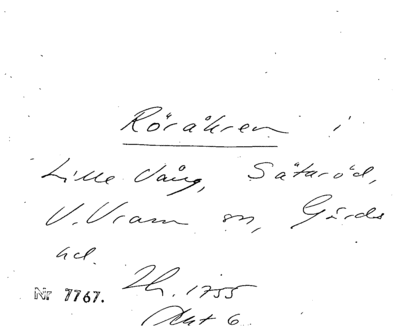 Röråkren i
Lille Vång, Sätaröd,
V. Vram sn, Gärds
hd.
Nr 7767. Lh. 1755
Akt 6